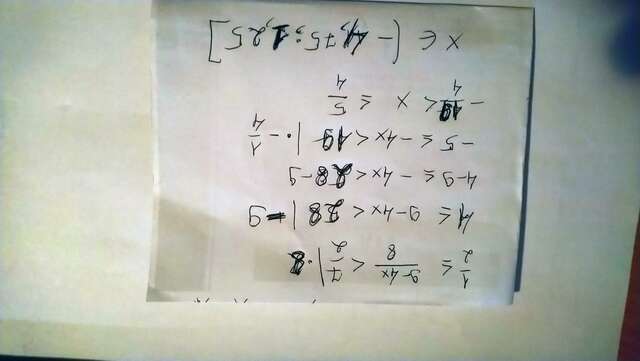 1/2 ≤ 9-4x/8 < 7/2 |·8
4 ≤ 9-4x < 28 |-9
4-9 ≤ -4x < 28-9
-5 ≤ -4x < 19 |·-1/4
-19/4 < x ≤ 5/4
x ∈ (-4,75; 1,25]